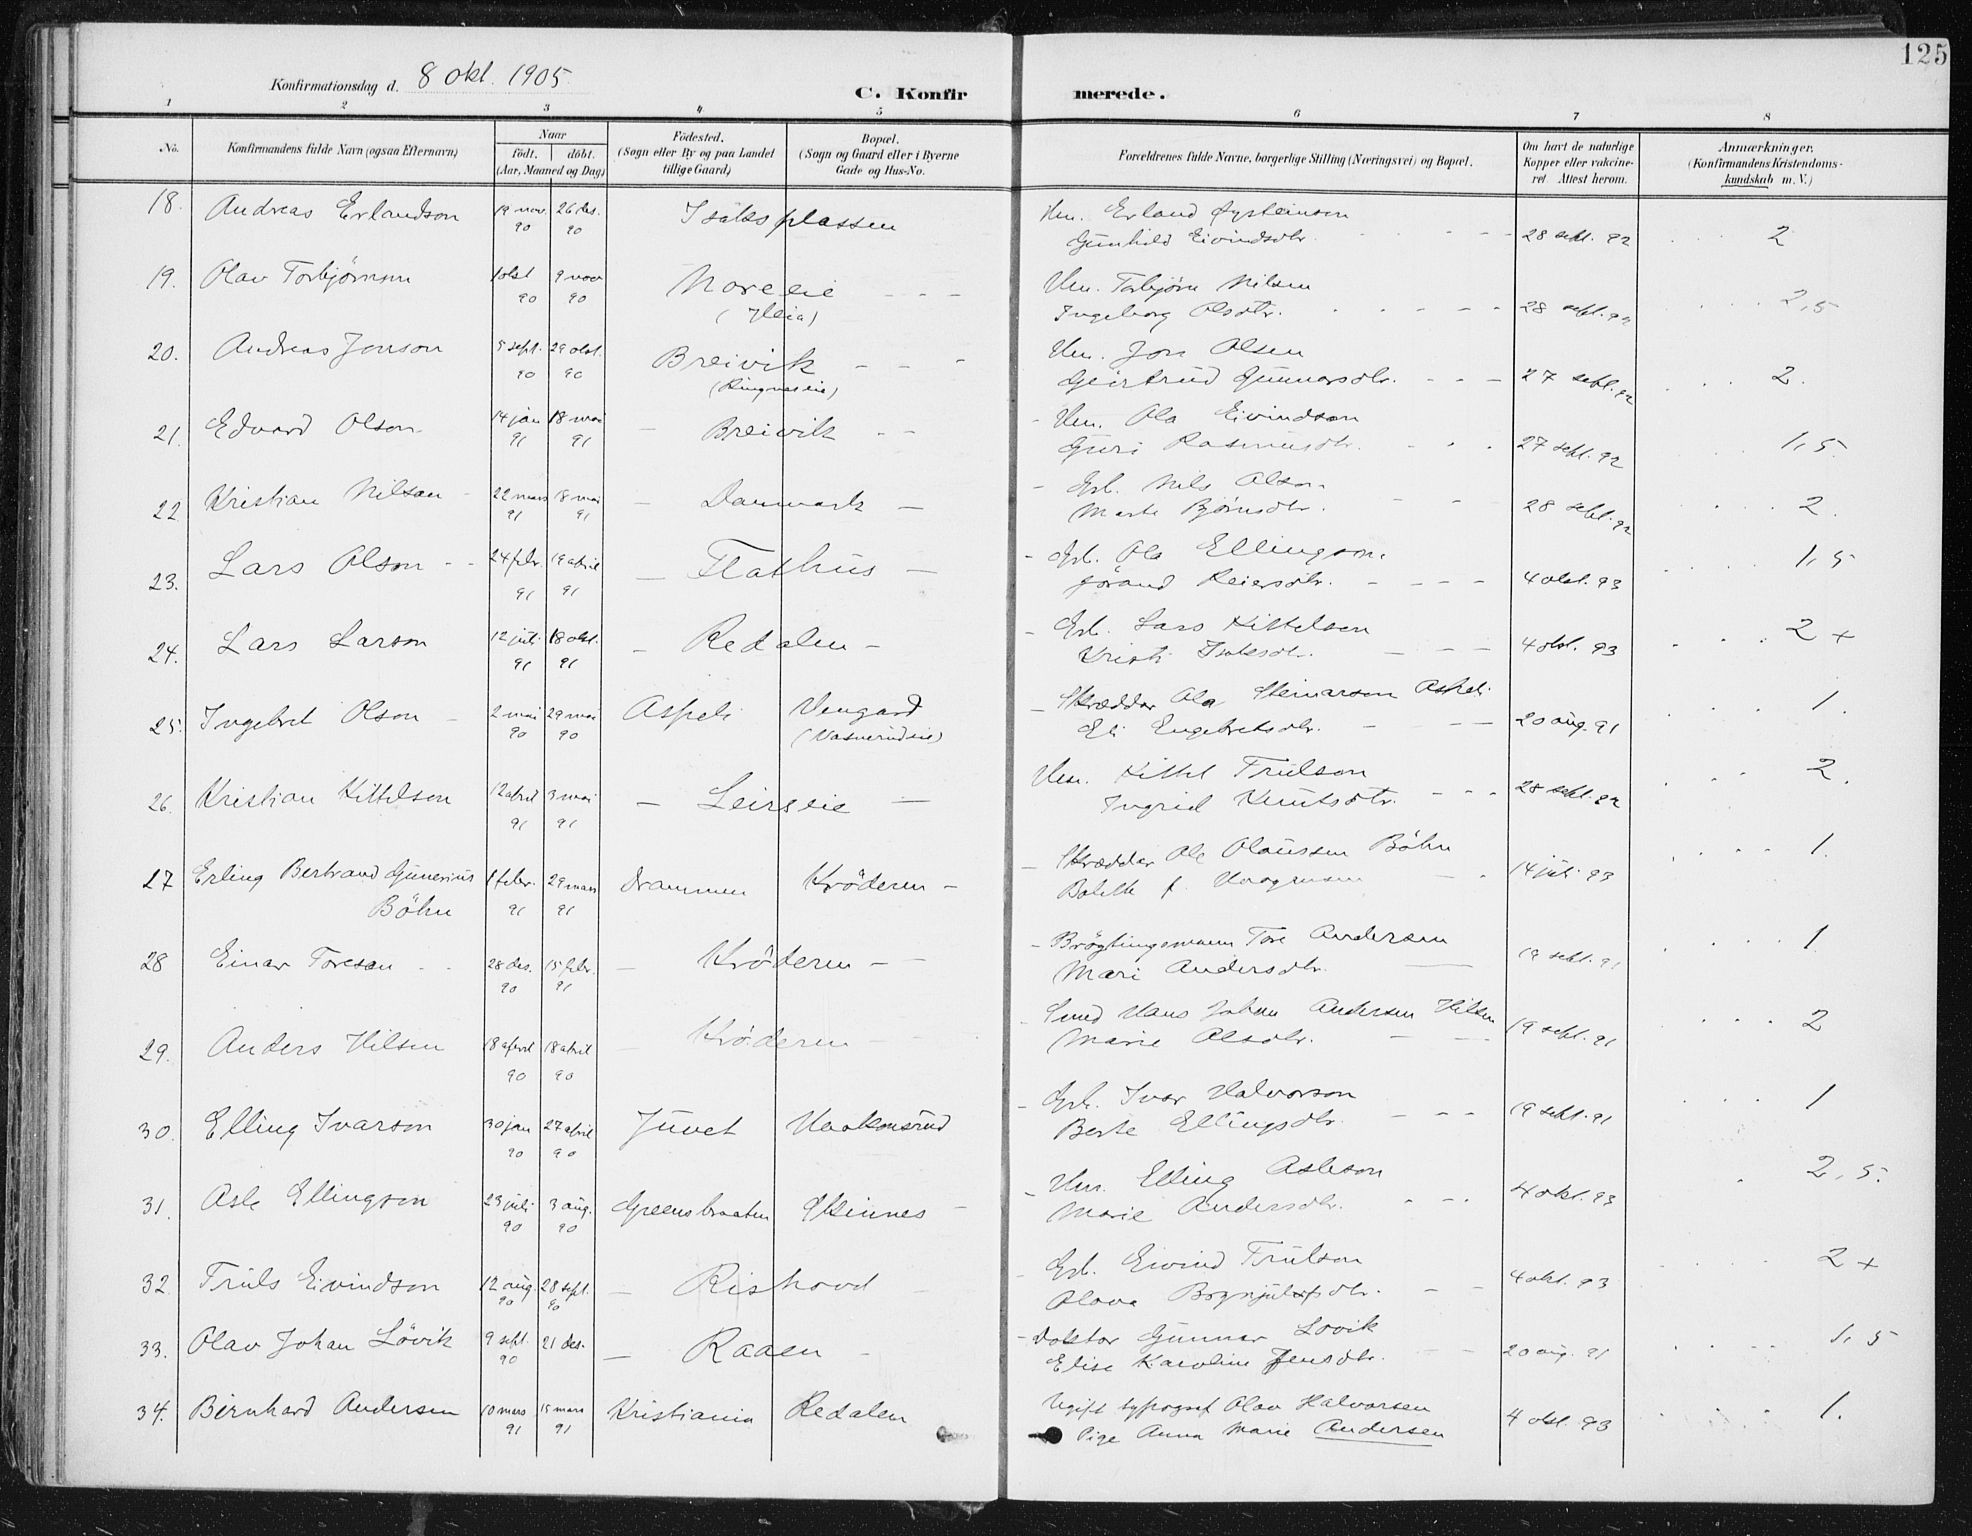 125
Konfirmationsdag d. 8 okt. 1905
C. Konfirmerede.
1 2 3 4 5 6 7 8
No. Konfirmandens fulde Navn (ogsaa Efternavn) Naar födt. döbt. (Aar, Maaned og Dag) Födested. (Sogn eller By og paa Landet tillige Gaard) Bopæl. (Sogn og Gaard eller i Byerne Gade og Hus-No. Forældrenes fulde Navne, borgerlige Stilling (Næringsvei) og Bopæl. Om havt de naturlige Kopper eller vakcineret. Attest herom. Anmærkninger. (Konfirmandens Kristendomskundskab m. V.)
18. Andreas Erlandson 19 nov. 90 26 des. 90 Isaksplassen Hm. Erland Øysteinson
Gunhild Eivindsdtr. 28 sept. 92 2
19. Olav Torbjørnson 1 okt 90 9 nov 90 Noreeie Hm. Torbjørn Nilsen
Ingeborg Olsdtr. 28 sept. 92 2,5
20. Andreas Jonson 5 sept. 90 29 okt. 90 Breivik (Ringneseie) Hm. Jon Olsen
Geirtrud Gunnarsdtr. 27 sept. 92 2.
21. Edvard Olson 14 jan 91 18 mai 91 Breivik Hm. Ola Eivindson
Guri Rasmusdtr. 27 sept. 92 1,5
22 Kristian Nilson 22 mars 91 18 mai 91 Danmark Gbr. Nils Olson
Marte Bjørnsdtr. 28 sept. 92 2.
23. Lars Olson 24 febr. 91 19 april 91 Flathus Gbr. Ola Ellingson.
Jørand Reiersdtr. 4 okt. 93 1,5
24. Lars Larson 12 juli 91 18 okt. 91 Redalen Gbr. Lars Kittelsen
Kristi Isaksdtr. 4 okt. 93 2 +
25. Ingebret Olson 2 mai 90 29 mai 90 Aspeli Vengard Skrædder Ola Steinarson Aspeli
Eli Engebretsdtr. 20 aug. 91 1.
26. Kristian Kittelson 12 april 91 3 mai 91 Leirseie Hm. Kittel Trulson
Ingrid Knutsdtr. 28 sept. 92 2.
27 Erling Bertrand Gunerius 1 febr. 91 29 mars 91 Drammen Kröderen Skrædder Ole Olaussen Böhn
Böhn 14 juli 93 1.
28 Einar Toreson 28 des. 90 15 febr. 91 Kröderen Brögtingsmann Tore Andersen
Mari Andersdtr. 19 sept. 91 1.
29. Anders Hilsen 18 april 90 18 april 90 Kröderen Smed Hans Johan Andersen Hilsen
Marie Olsdtr. 19 sept. 91 2
30. Elling Ivarson 30 jan 90 27 april 90 Juvet Haakonsrud Gbr. Ivar Halvorson
Berte Ellingsdtr. 19 sept. 91 1
31. Asle Ellingson 23 juli 90 3 aug. 90 Greensbraaten Skinnes Hm. Elling Asleson
Marie Andersdtr. 4 okt. 93 2,5.
32. Truls Eivindson 12 aug. 90 28 sept. 90 Rishovd Gbr. Eivind Trulson
Olava Borgnjulfsdtr. 4 okt. 93 2 +
33. Olav Johan Lövik 9 sept. 90 21 des. Raaen Doktor Gunnar Lovik
Elise Karoline Jensdtr. 20 aug. 91 1,5
34. Bernhard Andersen 10 mars 91 15 mars 91 Kristiania Redalen Ugift typograf Olav Halvorsen
Pige Anna Marie Andersen 4 okt. 93 1.